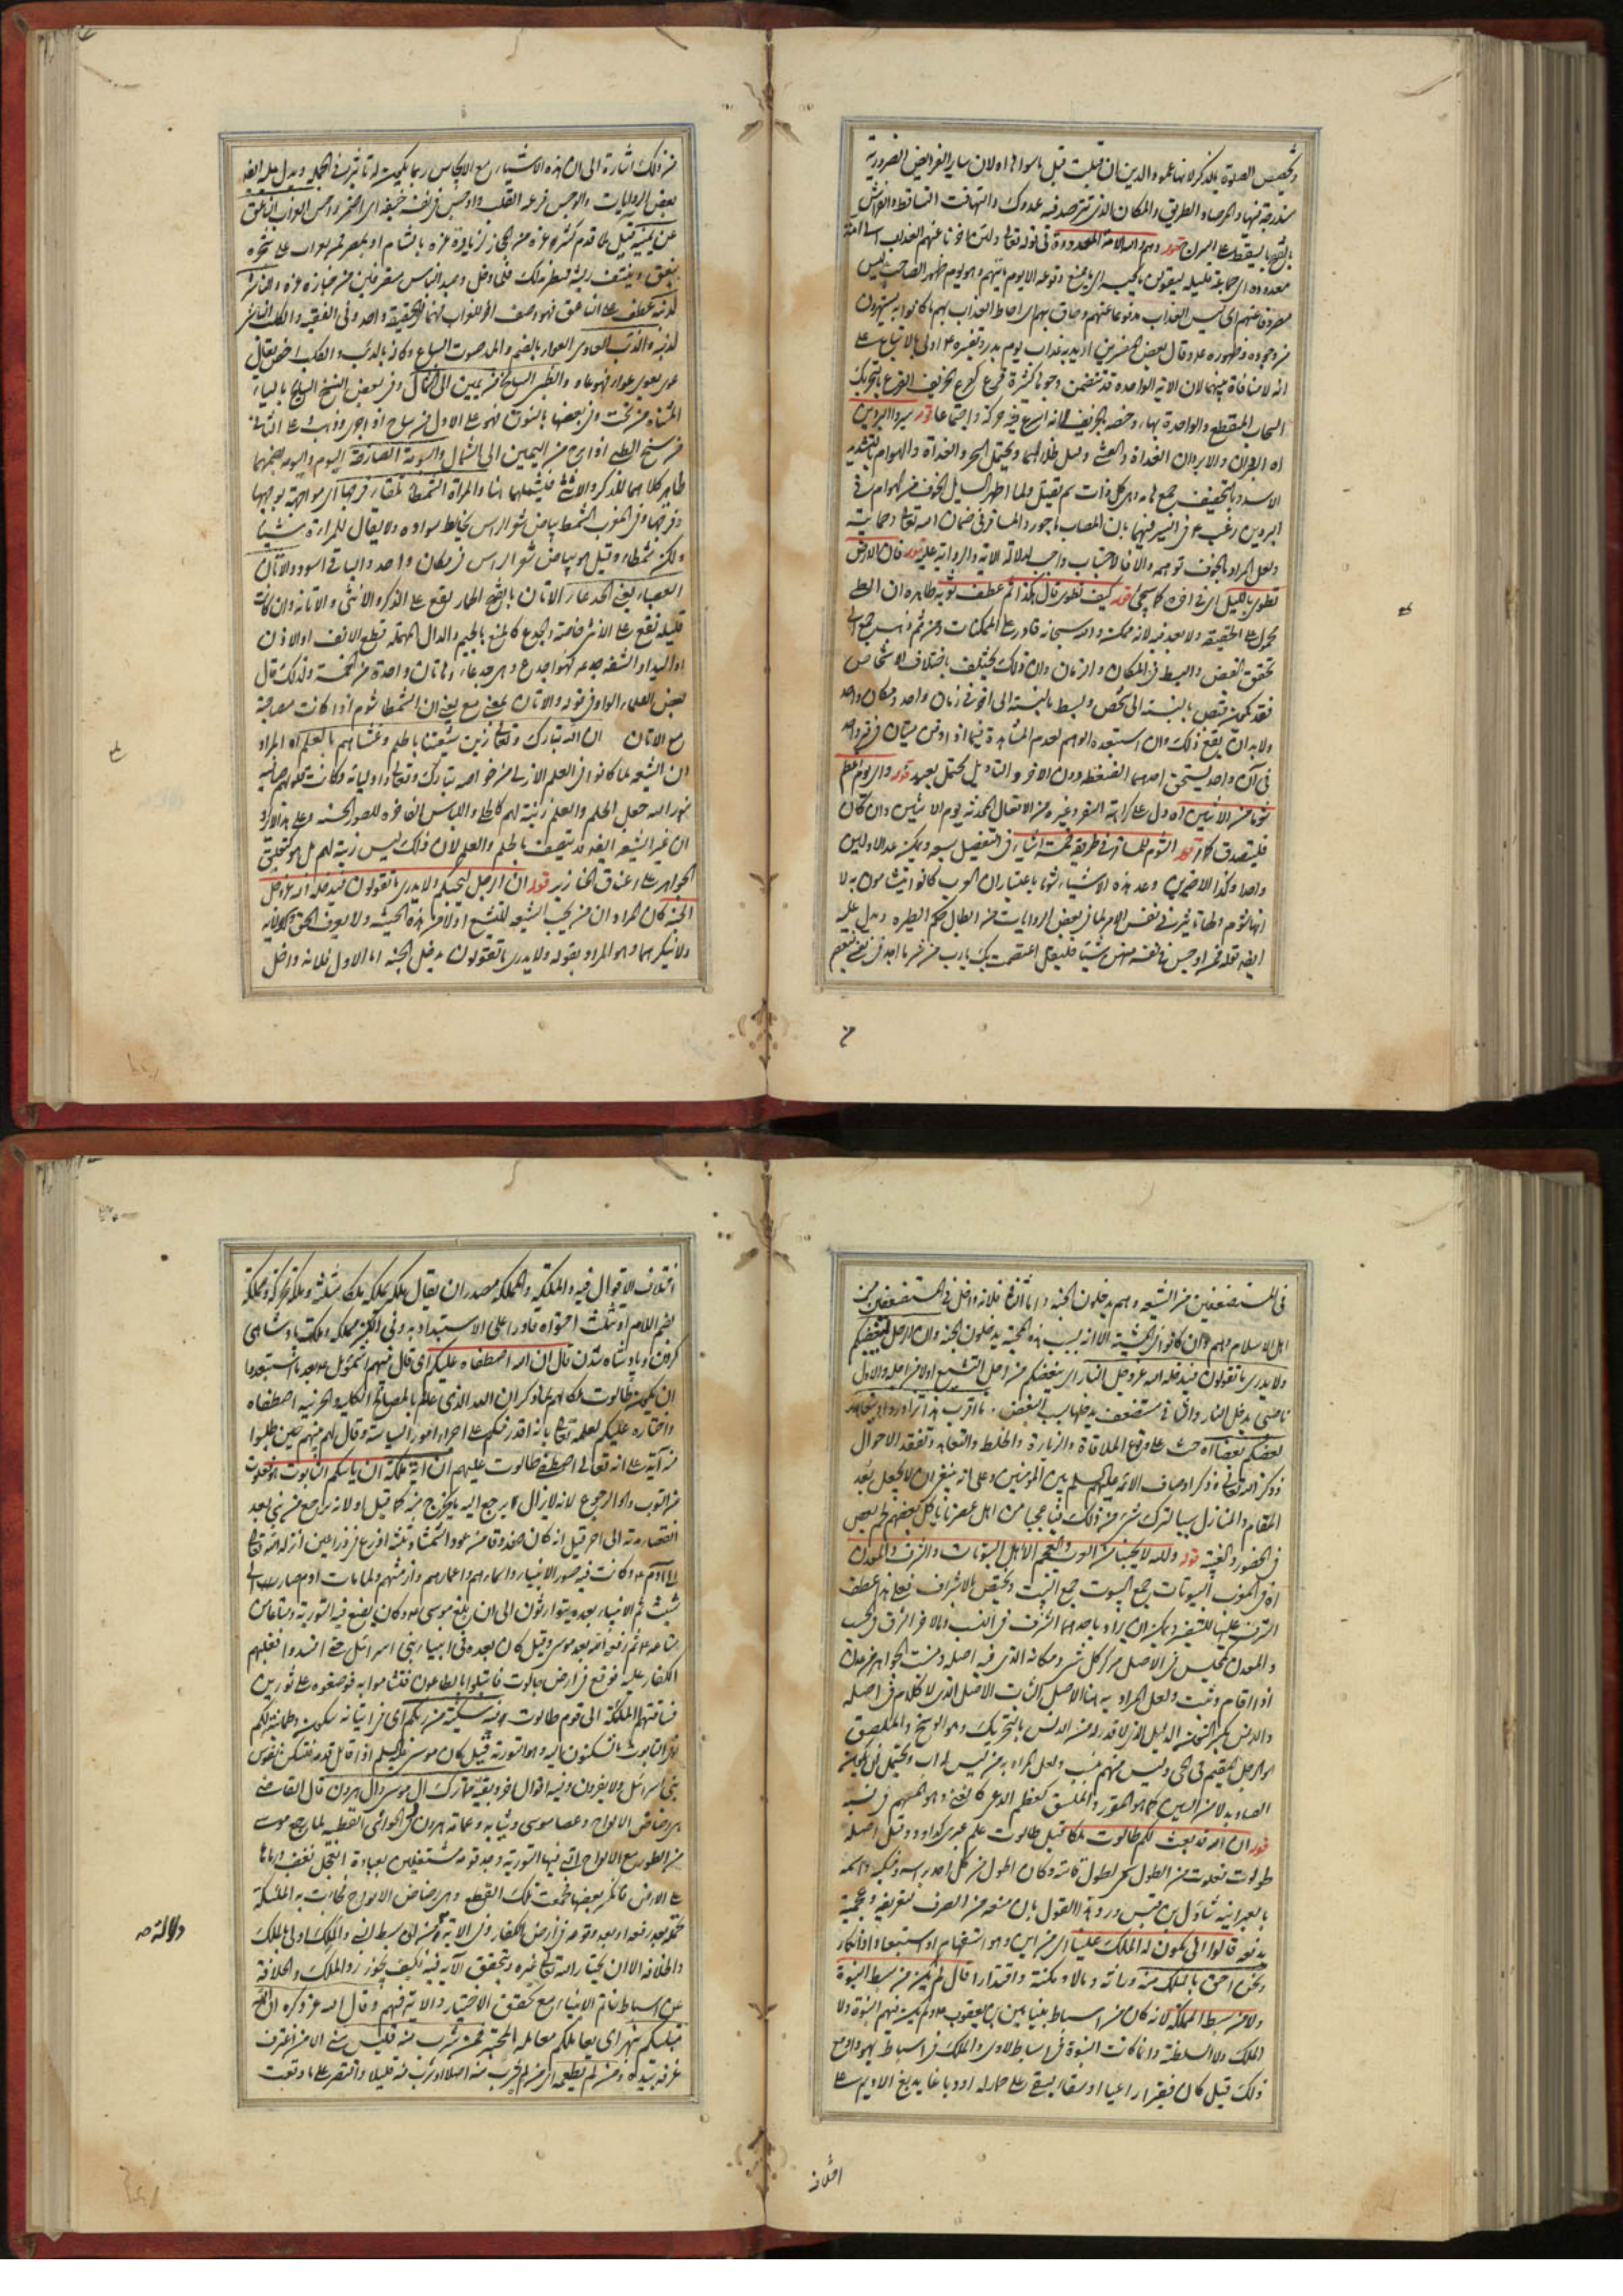 وتخصيص الصلوة بالذكر لانها عمود الدين ان قبلت قبل ما سواها اه لان ساير الفرائض الضرورية
مندرجة فيها والمرصاد الطريق والمكان الذى تترصد فيه عدوك والتهافت التساقط والفراش
بالفتح ما يسقط على السراج قوله وهم والله الامة المعدودة فى قوله تعالى ولئن اخرنا عنهم العذاب الى امة
معدودة اى جماعة قليلة ليقولن ما يحبسه اى ما يمنع وقوعه الا يوم ياتيهم وهو يوم ظهور الصاحب ليس
مصروفا عنهم اى ليس العذاب مدفوعا عنهم وحاق بهم اى احاط العذاب بهم ما كانوا به يستهزؤن
من وجوده وظهوره وقال بعض المفسرين اريد به عذاب يوم بدر وتفسيره اولى بالاتباع على
انه لا منافاة بينهما لان الآية الواحدة قد تتضمن وجوها كثيرة قزع كقزع الخريف القزع بالتحريك
السحاب المتقطع والواحدة بهاء وخصه بالخريف لانه اسرع فيه حركة واجتماعا قوله سيروا البردين
اه البردان والابردان الغداة والعشى وقيل ظلالهما ويحتمل السحر والغداة والهوام بالتشديد
الاسد وبالتخفيف جمع هامة وهى كل ذات سم يقتل ولما اظهر السايل الخوف من الهوام فى
البردين رغب فى السير فيهما بان المصاب ماجور والمسافر فى ضمان الله تعالى وحمايته
ولعل المراد بالخوف توهمه والا فالاجتناب واجب لدلالة الآية والرواية عليه قوله فان الارض
تطوى بالليل اى فى اخره كما سيجئ قوله كيف تطوى قال هكذا ثم عطف ثوبه ظاهره ان الطى
محمول على الحقيقة ولا بعد فيه لانه ممكن والله سبحانه قادر على الممكنات ومن ثم ذهب جمع الى
تحقق القبض والبسط فى المكان والزمان وان ذلك يختلف باختلاف الاشخاص
فقد يمكن قبض بالنسبة الى شخص وبسط بالنسبة الى اخر فى زمان واحد ومكان واحد
ولا بد ان يقع ذلك وان استبعده الوهم لعدم المشاهدة فيما اذا دفن ميتان فى قبر واحد
فى آن واحد يستحق احدهما الضغطة دون الاخر والتاويل محتمل بعيد قوله واى يوم اعظم
شوما من الاثنين اه دل على كراهة السفر وغيره من الافعال المحدثة يوم الاثنين وان كان
فليتصدق كما مر قوله الشوم للمسافر فى طريقه خمسة اشياء فى التفصيل سبعة ويمكن عد الاولين
واحدا وكذا الاخيرين وعد هذه الاشياء شوما باعتبار ان العرب كانوا يتشأمون به لا
انها شوم ولها تاثير فى نفس الامر لما فى بعض الروايات من ابطال حكم الطيرة ويدل عليه
ايضا قوله فمن اوجس فى نفسه منهن شيئا فليقل اعتصمت بك يا رب من شر ما اجد فى نفسى فيعصم
من
من ذلك اشارة الى ان هذه الاشياء مع الايجاس ربما يكون له تاثير فى الجملة ويدل عليه ايضا
بعض الروايات والوجس فزعة القلب واوجس فى نفسه خيفة اى اضمر واحس الغراب الناعق
عن يمينه قيل لما قدم كثير عزه من الحجاز لزيارة عزه بالشام او بمصر لقى غراب على شجرة
ينعق وينتف ريشه فتطير بذلك فمضى ودخل وجد الناس منصرفين من جنازة عزه والناشر
لذنبه عطف على الناعق فهو وصف اخر للغراب فهما فى الحقيقة واحد وفى الفقيه والكلب الناشر
لذنبه والذئب العاوى العواء بالضم والمد صوت السباع وكانه بالذئب والكلب اخص يقال
عوى يعوى عواء فهو عاو والظبى السانح من يمين الى شمال وفى بعض النسخ السايح بالياء
المثناة من تحت وفى بعضها بالنون فهو على الاول من ساح اذا جرى وذهب وعلى الثانى
من سنح الظبى اذا مر من اليمين الى الشمال والبومة الصارخة البوم والبومة بضمهما
طاير كلاهما للذكر والانثى فيشملهما هنا والمراة الشمطاء تلقاء فرجها اى مواجهة بوجهها
وفرجها وفى المغرب الشمط بياض شعر الراس يخالط سواده ولا يقال للمرأة شيباء
ولكن شمطاء وقيل هو بياض شعر الراس فى مكان واحد والباقى اسود والاتان
العضباء يعنى الجدعاء الاتان بالفتح الحمار يقع على الذكر والانثى والاتانة وان كانت
قليلة تقع على الانثى خاصة والجدع كالمنع بالجيم والدال المهملة قطع الانف او الاذن
او اليد او الشفة جدعه فهو اجدع وهى جدعاء وهاتان واحدة من الخمسة ولذلك قال
بعض العلماء الواو فى قوله والاتان بمعنى مع يعنى ان الشمطاء شوم اذا كانت مصاحبة
مع الاتان ان الله تبارك وتعالى زين شيعتنا بالحلم وغشاهم بالعلم اه المراد
ان الشيعة لما كانوا فى العلم الازلى من خواص الله تبارك وتعالى واوليائه وكانت قلوبهم صافية
بنور الله جعل الحلم والعلم زينة لهم كالحلى واللباس الفاخرة للصور الحسنة وعلى هذا لا يرد
ان غير الشيعة ايضا قد يتصف بالحلم والعلم لان ذلك ليس زينة لهم بل هو كتعليق
الجواهر على اعناق الخنازير قوله ان الرجل ليحبكم ولا يدرى ما تقولون فيدخله الله عز وجل
الجنة كان المراد ان من يحب الشيعة للتشيع او لا من هذه الحيثية ولا يعرف الحق وكماله
ولا ينكرهما وهو المراد بقوله ولا يدرى ما تقولون يدخل الجنة اما الاول فلانه داخل
فى المستضعفين من الشيعة وهم يدخلون الجنة واما الثانى فلانه داخل فى المستضعفين من
اهل الاسلام وهم وان كانوا فى المشية الا انه بسبب هذه المحبة يدخلون الجنة وان الرجل ليبغضكم
ولا يدرى ما تقولون فيدخله الله عز وجل النار اى يبغضكم من اجل التشيع او لا من اجله والاول
ناصبى يدخل النار والثانى مستضعف يدخلها بسبب البغض. ما اقرب هذا تزاوروا ويتعاهد
بعضكم بعضا اه حث على وقوع الملاقاة والزيارة والخلط والتعاهد وتفقد الاحوال
المقام والمنازل سببا لترك شىء من ذلك فيا عجبا من اهل عصرنا ياكل بعضهم لحم بعض
فى الحضور والغيبة قوله والله لا يحبنا من العرب والعجم الا اهل البيوتات والشرف والمعدن
اه فى المغرب البيوتات جمع البيوت جمع البيت ويختص بالاشراف فعلى هذا عطف
الشرف عليها للتفسير ويمكن ان يراد باحدهما الشرف فى النسب وبالاخر الشرف فى الحسب
والمعدن كمجلس فى الاصل مركز كل شىء ومكانه الذى فيه اصله ومنبت الجواهر من عدن
اذا اقام وثبت ولعل المراد به هنا الاصل الثابت الاصل الذى لا كلام فى اصله
قوله ان الله قد بعث لكم طالوت ملكا قيل طالوت علم عبرى كداود وقيل اصله
طولوت فعلوت من الطول سمى لطول قامته وكان اطول من كل احد براسه ومنكبه واسمه
يدفعه قالوا انى يكون له الملك علينا اى من اين وهو استفهام او استبعاد او انكار
ونحن احق بالملك منه وراثة ومالا ومكنة واقتدارا قال لم يكن من سبط النبوة
ولا من سبط المملكة لانه كان من اسباط بنيامين بن يعقوب ولم يكن فيهم النبوة ولا
الملك ولا السلطنة وانما كانت النبوة فى اسباط لاوى والملك فى اسباط يهودا ومع
ذلك قيل كان فقيرا راعيا او سقاء يسقى على حمار له او دباغا يدبغ الاديم على
اختلاف
اختلاف الاقوال فيه والملكة والمملكة مصدران يقال ملكه يملكه ملكا مثلثة وملكة محركة ومملكة
بضم اللام او يثلث احتواه قادرا على الاستبداد به وفى الكنز مملكة وملكت پادشاهى
كردن و پادشاه شدن قال ان الله اصطفاه عليكم اى قال نبيهم اشموئيل بعد ما استبعدوا
ان يكون طالوت ملكا لهم بما ذكر ان الله الذى علم بالمصالح الكلية والجزئية اصطفاه
واختاره عليكم لعلمه تعالى بانه اقدر منكم على اجراء امور السياسة وقال لهم نبيهم حين طلبوا
منه آية على انه تعالى اصطفى طالوت عليهم ان آية ملكه ان ياتيكم التابوت هو فعلوت
من التوب وهو الرجوع لانه لا يزال يرجع اليه ما يخرج منه كما قيل او لانه يرجع من نبى بعد
انقضاء مدته الى اخر قيل انه كان صندوقا من عود الشمشاد ثلثة اذرع فى ذراعين انزله الله تعالى
على آدم وكانت فيه صور الانبياء واسماءهم واعمارهم وازمنتهم ولما مات ادم صار الى
شيث ثم الانبياء بعده يتوارثون الى ان بلغ موسى وكان يضع فيه التورية ومتاعا من
متاعه ثم رفعه الله بعد موسى وقيل كان بعده فى انبياء بنى اسرائيل حتى افسدوا فغلبهم
الكفار عليه فوقع فى ارض جالوت فابتلوا بالطاعون فتشأموا به فوضعوه على ثورين
فساقتهما الملئكة الى قوم طالوت فيه سكينة من ربكم اى فى اتيانه سكون وطمانينة لكم
او فى التابوت ما تسكنون اليه وهو التورية قيل كان موسى عليه السلم اذا قاتل قدمه فتسكن نفوس
بنى اسرائيل ولا يفرون وفيه اقوال اخر وبقية مما ترك آل موسى وآل هرون قال القاضى
هى رضاض الالواح وعصا موسى وثيابه وعمامة هرون
من الطور مع الالواح التى فيها التورية وجد قومه مشتغلين بعبادة العجل فغضب ورماها
على الارض فانكسر بعضها فجمعت تلك القطع وهى رضاض الالواح فجاءت به الملئكة
والخلافة الا ان يختار الله تعالى غيره وتحقق الآية فيه فكيف يجوز رد الملك والخلافة
عن اسباط خاتم الانبياء مع تحقق الاختيار والآية فيهم وقال الله عز ذكره ان الله
مبتليكم بنهر اى يعاملكم معاملة المختبر فمن شرب منه فليس منى الا من اغترف
غرفة بيده ومن لم يطعمه اى من لم يشرب منه اصلا او شرب منه قليلا واقتصر على ما وقعت
دلالة صح